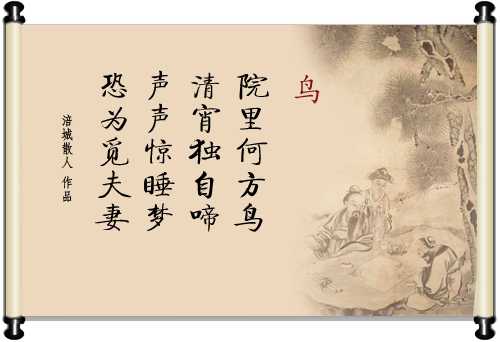 鸟
院里何方鸟
清宵独自啼
声声惊睡梦
恐为觅夫妻
涪城散人 作品